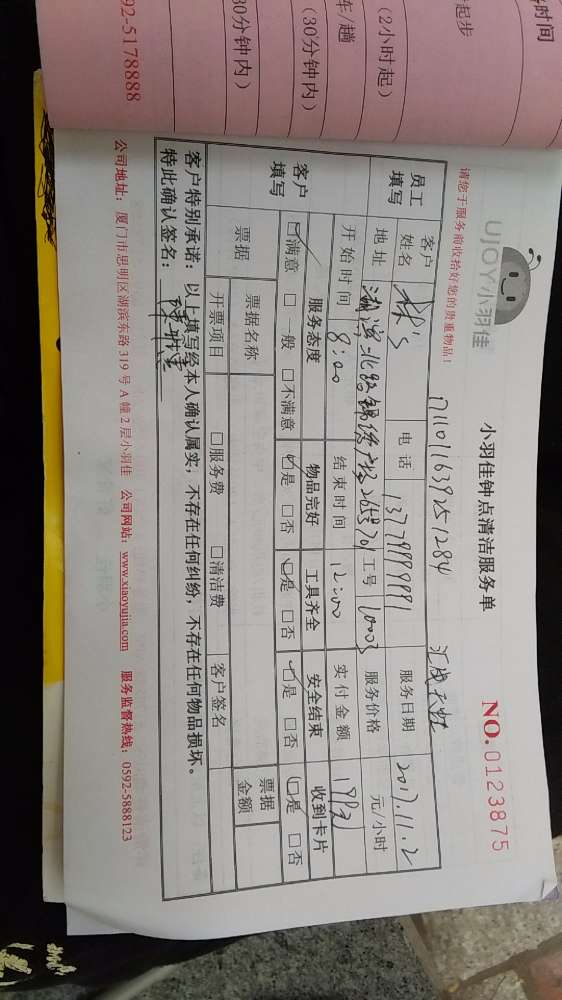 时间
起步
(2小时起)
车/趟
(30分钟内)
30分钟内)
92-5178888
UJOY小羽佳
小羽佳钟点清洁服务单
NO.0123875
请您于服务前收拾好您的贵重物品!
711011639251284
员工填写
客户姓名
电话 13779999991
服务日期 2017.11.12
地址
工号 10003
服务价格 元/小时
开始时间 8:00
结束时间 12:00
实付金额
客户填写
服务态度 物品完好 工具齐全 安全结束 收到卡片
☑满意 □一般 □不满意 ☑是 □否 ☑是 □否 ☑是 □否 ☑是 □否
票据
票据名称
票据金额
开票项目 □服务费 □清洁费 客户签名
客户特别承诺:以上填写经本人确认属实,不存在任何纠纷,不存在任何物品损坏。
特此确认签名:
公司地址:厦门市思明区湖滨东路319号A幢2层小羽佳 公司网站:www.xiaoyujia.com 服务监督热线:0592-5888123